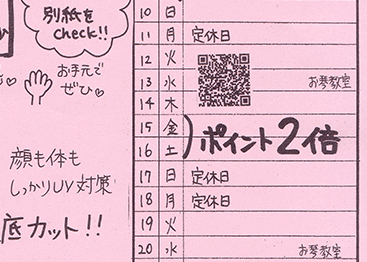 別紙を
check!!
お手元で
ぜひ
顔も体も
しっかりUV対策
底カット!!
10 日
11 月 定休日
12 火
13 水 お琴教室
14 木
15 金
ポイント2倍
16 土
17 日 定休日
18 月 定休日
19 火
20 水 お琴教室